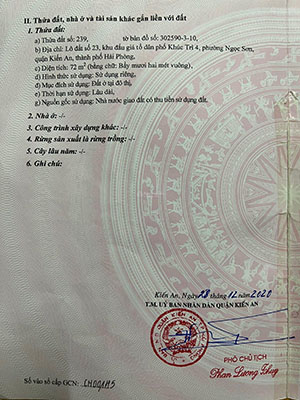 II. Thửa đất, nhà ở và tài sản khác gắn liền với đất
1. Thửa đất:
a) Thửa đất số: 239, tờ bản đồ số: 302590-3-10,
b) Địa chỉ: Lô đất số 23, khu đấu giá tổ dân phố Khúc Trì 4, phường Ngọc Sơn,
quận Kiến An, thành phố Hải Phòng,
c) Diện tích: 72 m² (bằng chữ: Bảy mươi hai mét vuông),
d) Hình thức sử dụng: Sử dụng riêng,
đ) Mục đích sử dụng: Đất ở tại đô thị,
e) Thời hạn sử dụng: Lâu dài,
g) Nguồn gốc sử dụng: Nhà nước giao đất có thu tiền sử dụng đất.
2. Nhà ở: -/-
3. Công trình xây dựng khác: -/-
4. Rừng sản xuất là rừng trồng: -/-
5. Cây lâu năm: -/-
6. Ghi chú:
Kiến An, Ngày 28 tháng 12 năm 2020
T.M. UỶ BAN NHÂN DÂN QUẬN KIẾN AN
PHÓ CHỦ TỊCH
Phan Lương Thuy
Số vào sổ cấp GCN: